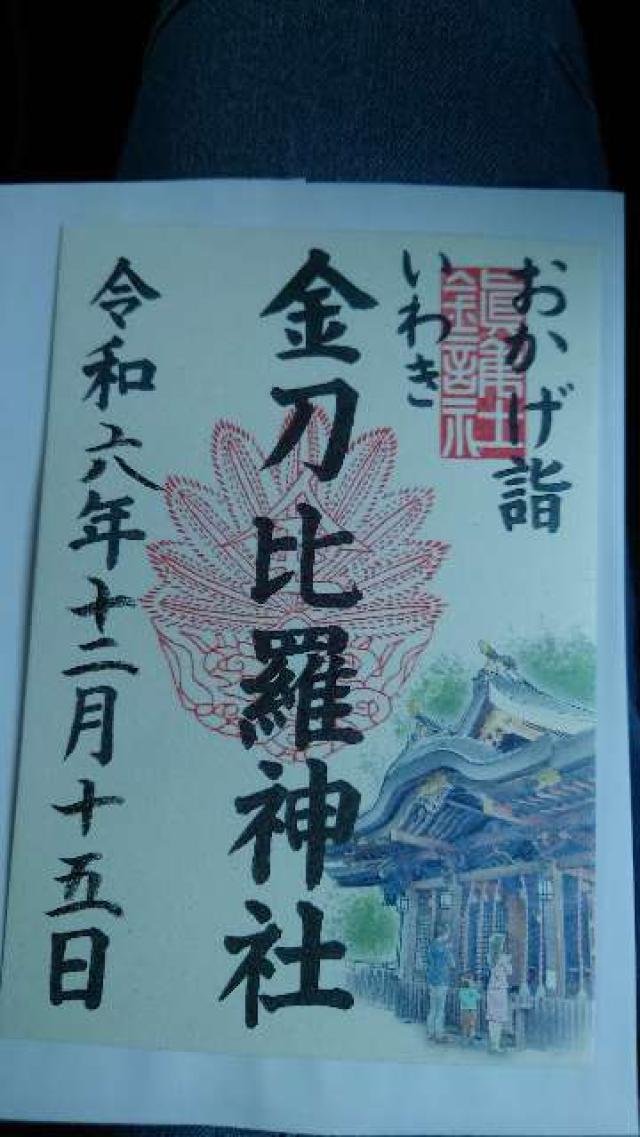 おかげ詣
いわき
金刀比羅神社
令和六年十二月十五日